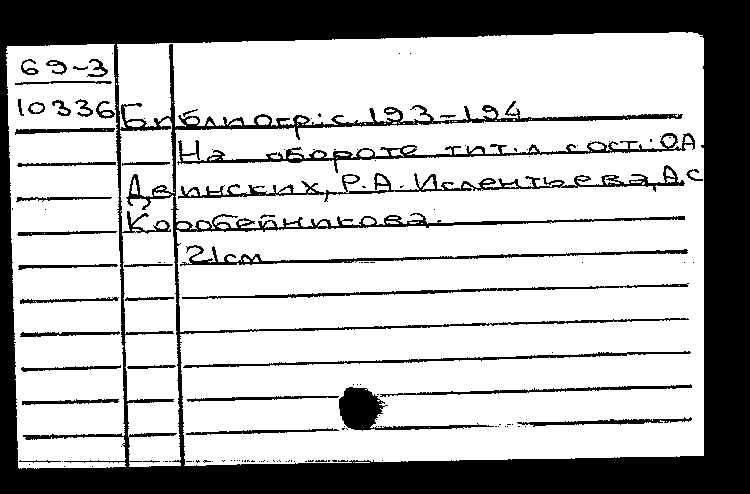 69-3
10336 Библиогр.: с. 193-194
На обороте тит. л сост.: О.А.
Двинских, Р.А. Ислентьева, А.С
Коробейникова.
21см